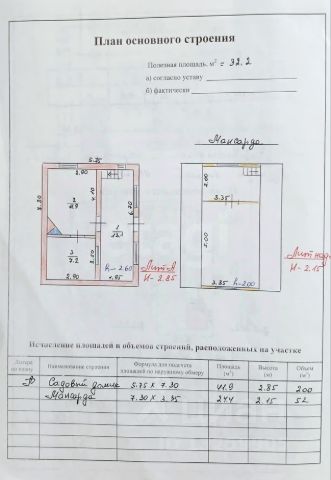 План основного строения
Полезная площадь, м² = 32.2
а) согласно уставу
б) фактически
Мансарда
5.75
2.90
2.00
4.10
6.70
3.35
7.30
2
11.9
1
13.1
5.00
3
7.2
h-2.60
Лит А
Н-2.85
2.90
1.95
3.35 h-2.00
Н-2.15
Исчисление площадей и объемов строений, расположенных на участке
Литера по плану
Наименование строения
Формула для подсчета площадей по наружному обмеру
Площадь (м²)
Высота (м)
Объем (м³)
А Садовый домик 5.75 x 7.30 41.9 2.85 200
Мансарда 7.30 x 3.35 24.4 2.15 52